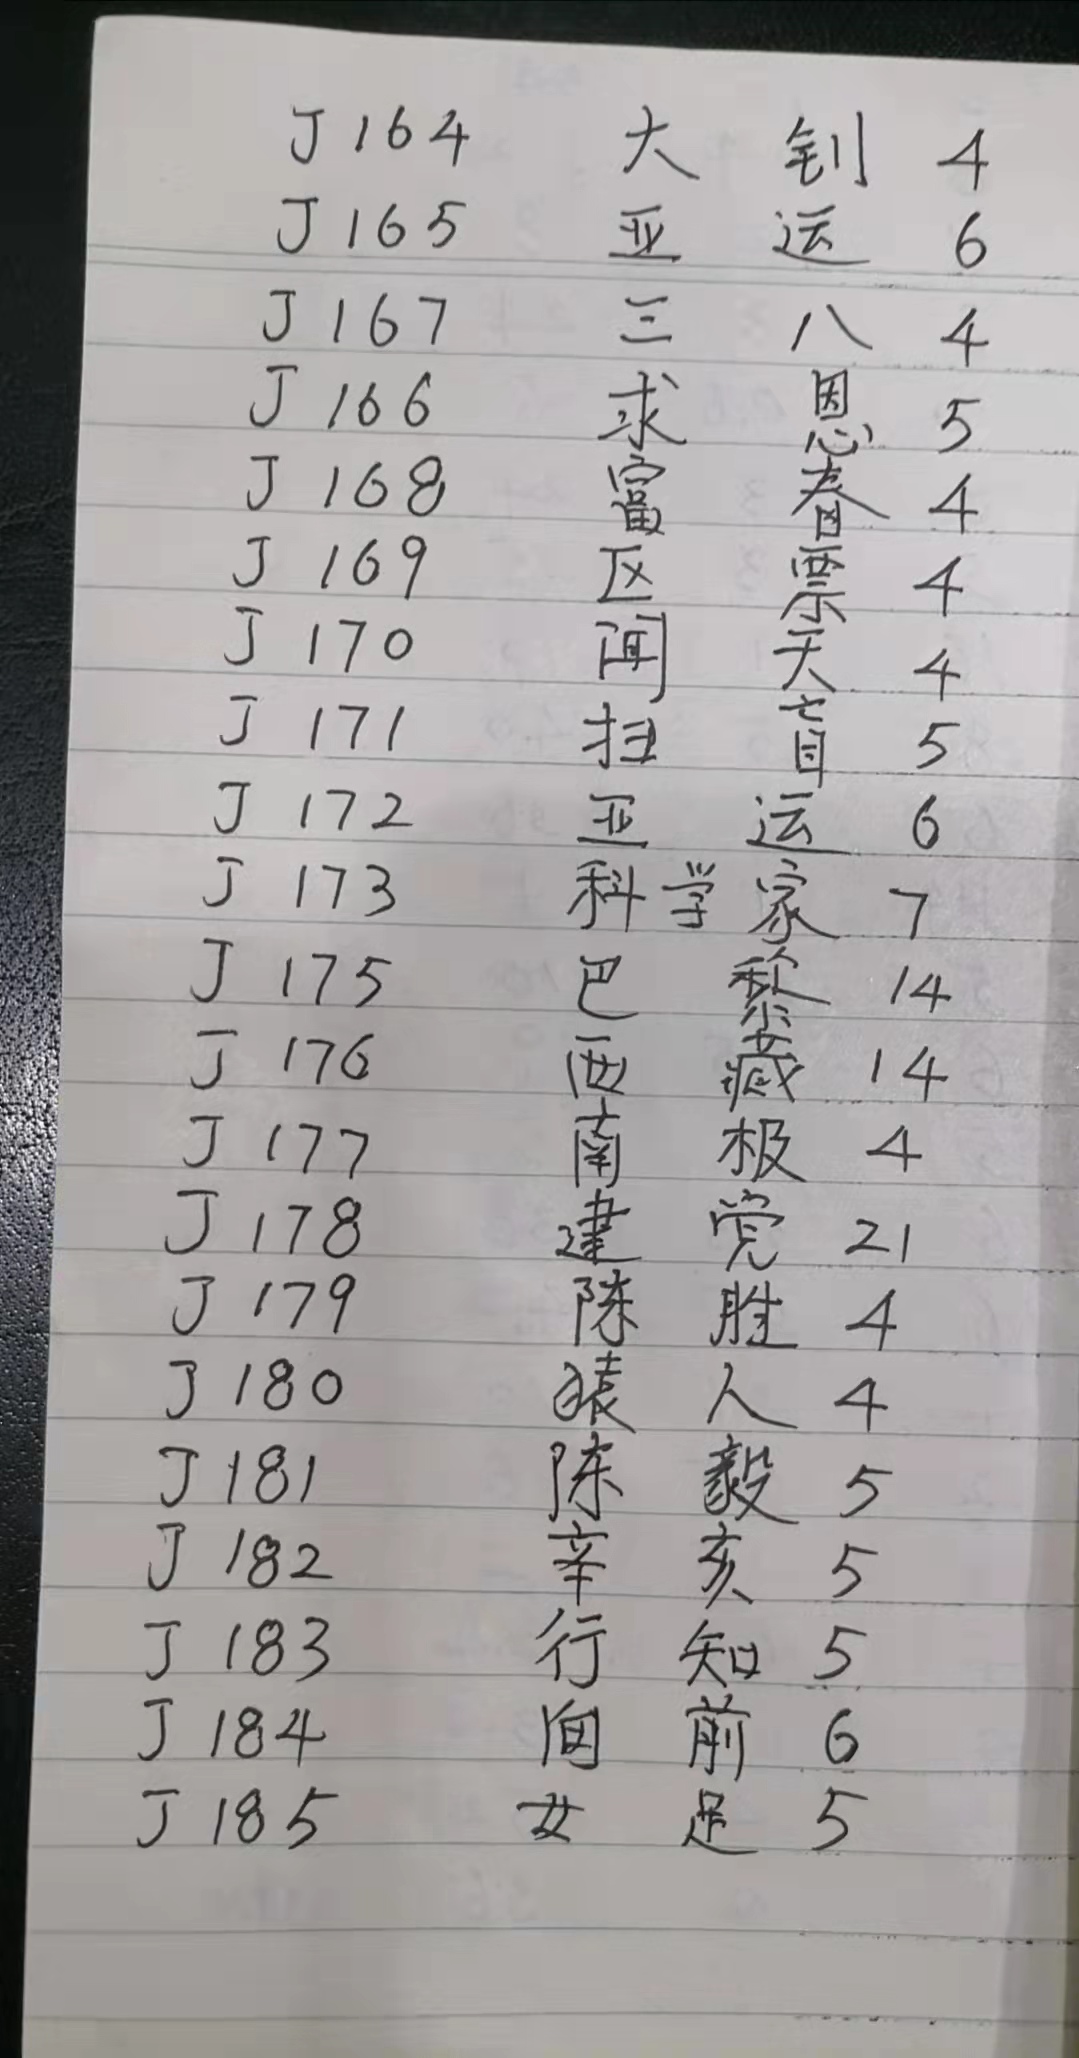 J164 大 钊 4
J165 亚 运 6
J167 三 八 4
J166 求 恩 5
J168 富 春 4
J169 区 票 4
J170 闻 天 4
J171 扫 盲 5
J172 亚 运 6
J173 科学家 7
J175 巴 黎 14
J176 西 藏 14
J177 南 极 4
J178 建 党 21
J179 陈 胜 4
J180 猿 人 4
J181 陈 毅 5
J182 辛 亥 5
J183 行 知 5
J184 向 前 6
J185 女 足 5